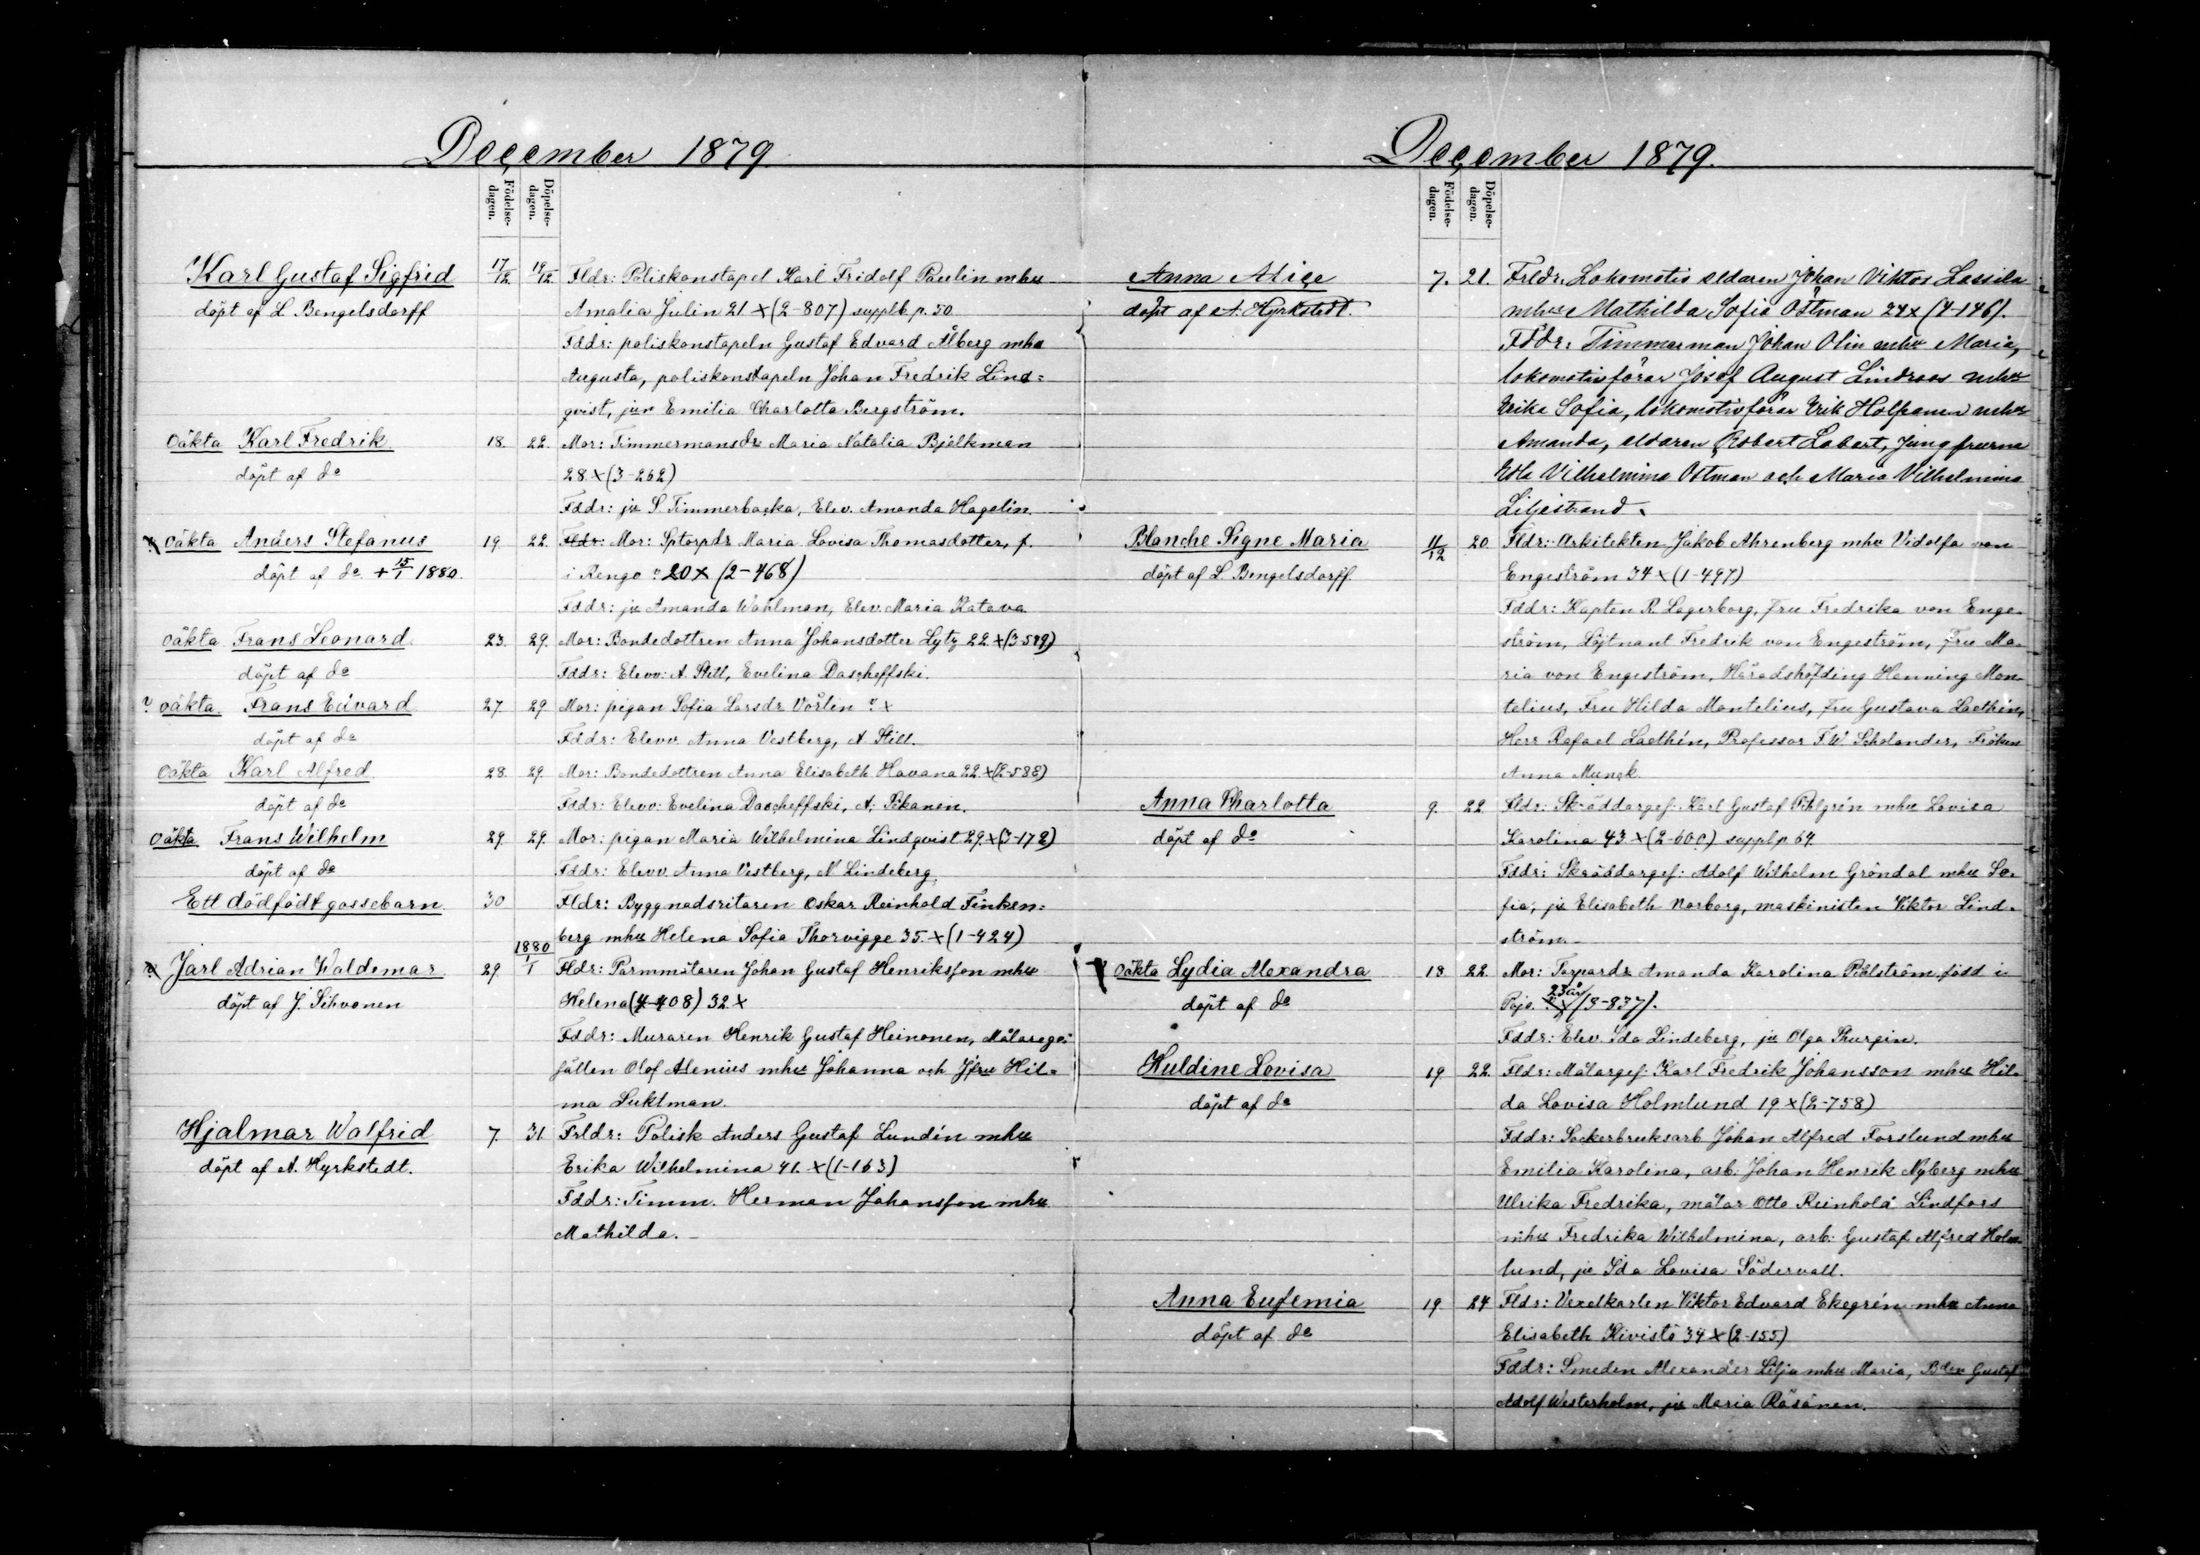 December 1879
Födelse-dagen.
Döpelse-dagen.
Karl Gustaf Sigfrid 17/12 19/12 Fldr: Poliskonstapel Karl Fridolf Paulin mhu
döpt af L Bengelsdorff Amalia Julin 21 x (2-807) supplb p. 50
Fddr: poliskonstapeln Gustaf Edvard Ålberg mhu
Augusta, poliskonstapeln Johan Fredrik Lind=
qvist, jun Emilia Charlotta Bergström.
Oäkta Karl Fredrik 18. 22. Mor: Timmermansdr Maria Natalia Bjelkman
döpt af do 28 x (3-262)
Fddr: ju S Timmerbacka, Elev. Amanda Hagelin.
oäkta Anders Stefanus 19. 22. Fldr: Mor: Sptorpdr Maria Lovisa Thomasdotter, f.
döpt af do + 15/1 1880. i Rengo ? 20 x (2-468)
Fddr: ju Amanda Wahlman, Elev. Maria Katava
oäkta Frans Leonard 23. 29. Mor: Bondedottren Anna Johansdotter Lytz 22 x (3-549)
döpt af do Fddr: Elevv: A. Still, Evelina Dascheffski.
? oäkta Frans Edvard 27. 29 Mor: pigan Sofia Larsdr Vörlin ? x
döpt af do Fddr: Elevv. Anna Vestberg, A Still.
Oäkta Karl Alfred 28. 29. Mor: Bondedottren Anna Elisabeth Havana 22 x (2-588)
döpt af do Fddr: Elevv: Evelina Dascheffski, A. Pikanen.
Oäkta Frans Wilhelm 29. 29. Mor: pigan Maria Wilhelmina Lindqvist 29 x (3-178)
döpt af do Fddr: Elevv. Anna Vestberg, N Lindeberg.
Ett dödfödt gossebarn 30 Fldr: Byggnadsritaren Oskar Reinhold Finken=
berg mhu Helena Sofia Thorvigge 35. x (1-424)
Jarl Adrian Waldemar 29. 1880 1/1 Fldr: Parmmätaren Johan Gustaf Henriksson mhu
döpt af J. Sihvonen Helena (4-408) 32 x
Fddr: Muraren Henrik Gustaf Heinonen, Målarege=
sällen Olof Alenius mhu Johanna och Jfru Hil=
ma Luktman.
Hjalmar Walfrid 7. 31 Frldr: Polisk Anders Gustaf Lundén mhu
döpt af A. Hyrkstedt. Erika Wilhelmina 41. x (1-163)
Fddr: Timm. Herman Johansson mhu
Mathilda.
December 1879.
Födelse-dagen.
Döpelse-dagen.
Anna Alice 7. 21. Frldr: Lokomotiv eldaren Johan Viktor Lassila
döpt af A. Hyrkstedt. mhu Mathilda Sofia Östman 24 x (4-146).
Fddr: Timmerman Johan Olin mhu Maria,
lokomotivförar Josef August Lindroos mhu
Erika Sofia, lokomotivförar Erik Holpanen mhu
Amanda, eldaren Robert Labart, Jungfrurna
Edla Vilhelmina Östman och Maria Vilhelmina
Liljestrand.
Blanche Signe Maria 11/12 20 Fldr: Arkitekten Jakob Ahrenberg mhu Vidolfa von
döpt af L. Bengelsdorff. Engeström 34 x (1-497)
Fddr: Kapten R. Lagerborg, Fru Fredrika von Enge-
ström, Löjtnant Fredrik von Engeström, Fru Ma-
ria von Engeström, Häradshöfding Henning Mon-
telius, Fru Hilda Montelius, Fru Gustava Laethén,
Herr Rafael Laethén, Professor F.W. Scholander, Fröken
Anna Munck.
Anna Charlotta 9. 22. Fldr: Skräddargef: Karl Gustaf Pihlgrén mhu Lovisa
döpt af do Karolina 43 x (2-600) suppl p. 64.
Fddr: Skräddargef: Adolf Wilhelm Gröndal mhu So-
fia, ju Elisabeth Norborg, maskinisten Viktor Lind-
ström.
Oäkta Lydia Alexandra 18 22. Mor: Torpardr Amanda Karolina Pihlström född i
döpt af do Pojo. 23 år x (3-837).
Fddr: Elev. Ida Lindeberg, ju Olga Thurgin.
Huldine Lovisa 19 22. Fldr: Målargef: Karl Fredrik Johansson mhu Hil-
döpt af do da Lovisa Holmlund 19 x (2-758)
Fddr: Sockerbruksarb Johan Alfred Forslund mhu
Emilia Karolina, arb: Johan Henrik Nyberg mhu
Ulrika Fredrika, målar Otto Reinhold Lindfors
mhu Fredrika Wilhelmina, arb: Gustaf Alfred Holm-
lund, ju Ida Lovisa Södervall.
Anna Eufemia 19 24 Fldr: Vexelkarlen Viktor Edvard Ekegrén mhu Anna
döpt af do Elisabeth Kivistö 34 x (2-155)
Fddr: Smeden Alexander Lilja mhu Maria, Bden Gustaf
Adolf Westerholm, ju Maria Räsänen.